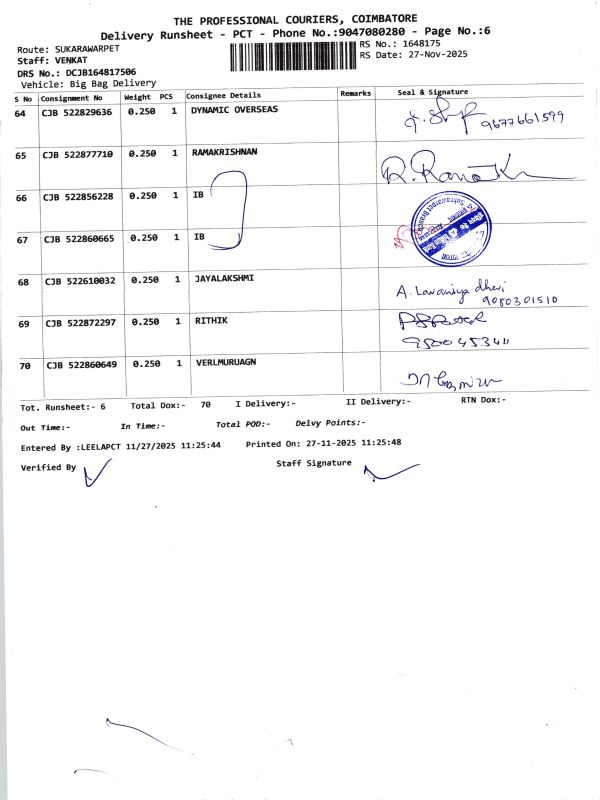 THE PROFESSIONAL COURIERS, COIMBATORE
Delivery Runsheet - PCT - Phone No.:9047080280 - Page No.:6
Route: SUKARAWARPET
RS No.: 1648175
Staff: VENKAT
RS Date: 27-Nov-2025
DRS No.: DCJB164817506
Vehicle: Big Bag Delivery
S No Consignment No Weight PCS Consignee Details Remarks Seal & Signature
64 CJB 522829636 0.250 1 DYNAMIC OVERSEAS
9677661599
65 CJB 522877710 1 0.250 RAMAKRISHNAN
R. Rama
66 CJB 522856228 0.250 1 IB
67 CJB 522860665 0.250 1 IB
68 CJB 522610032 0.250 1 JAYALAKSHMI
A. Lavaniya dhevi
9080301510
69 CJB 522872297 0.250 1 RITHIK
9500453411
70 CJB 522860649 0.250 1 VERLMURUAGN
Tot. Runsheet:- 6 Total Dox:- 70 I Delivery:- II Delivery:- RTN Dox:-
Out Time:- In Time:- Total POD:- Delvy Points:-
Entered By :LEELAPCT 11/27/2025 11:25:44 Printed On: 27-11-2025 11:25:48
Verified By Staff Signature